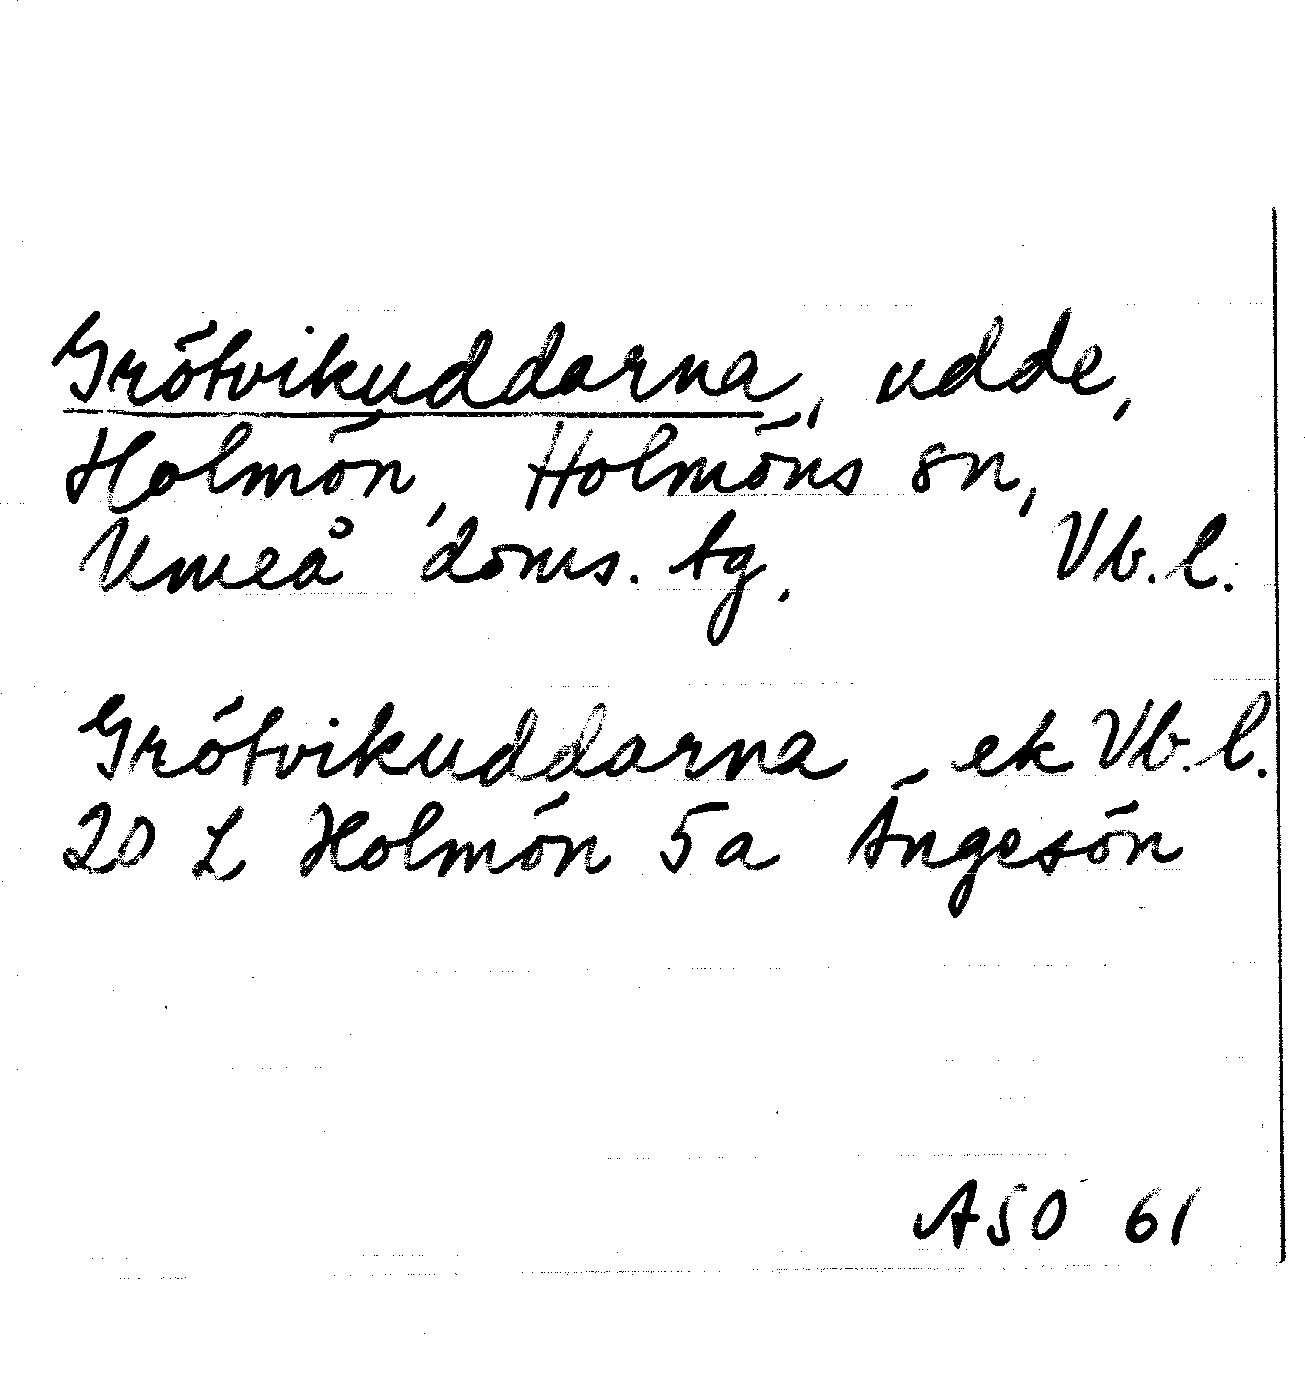 Grötvikuddarna, udde,
Holmön, Holmöns sn,
Umeå doms. tg. Vb. l.
Grötvikuddarna ek Vb. l.
20 L Holmön 5a Ängesön
ASO 61